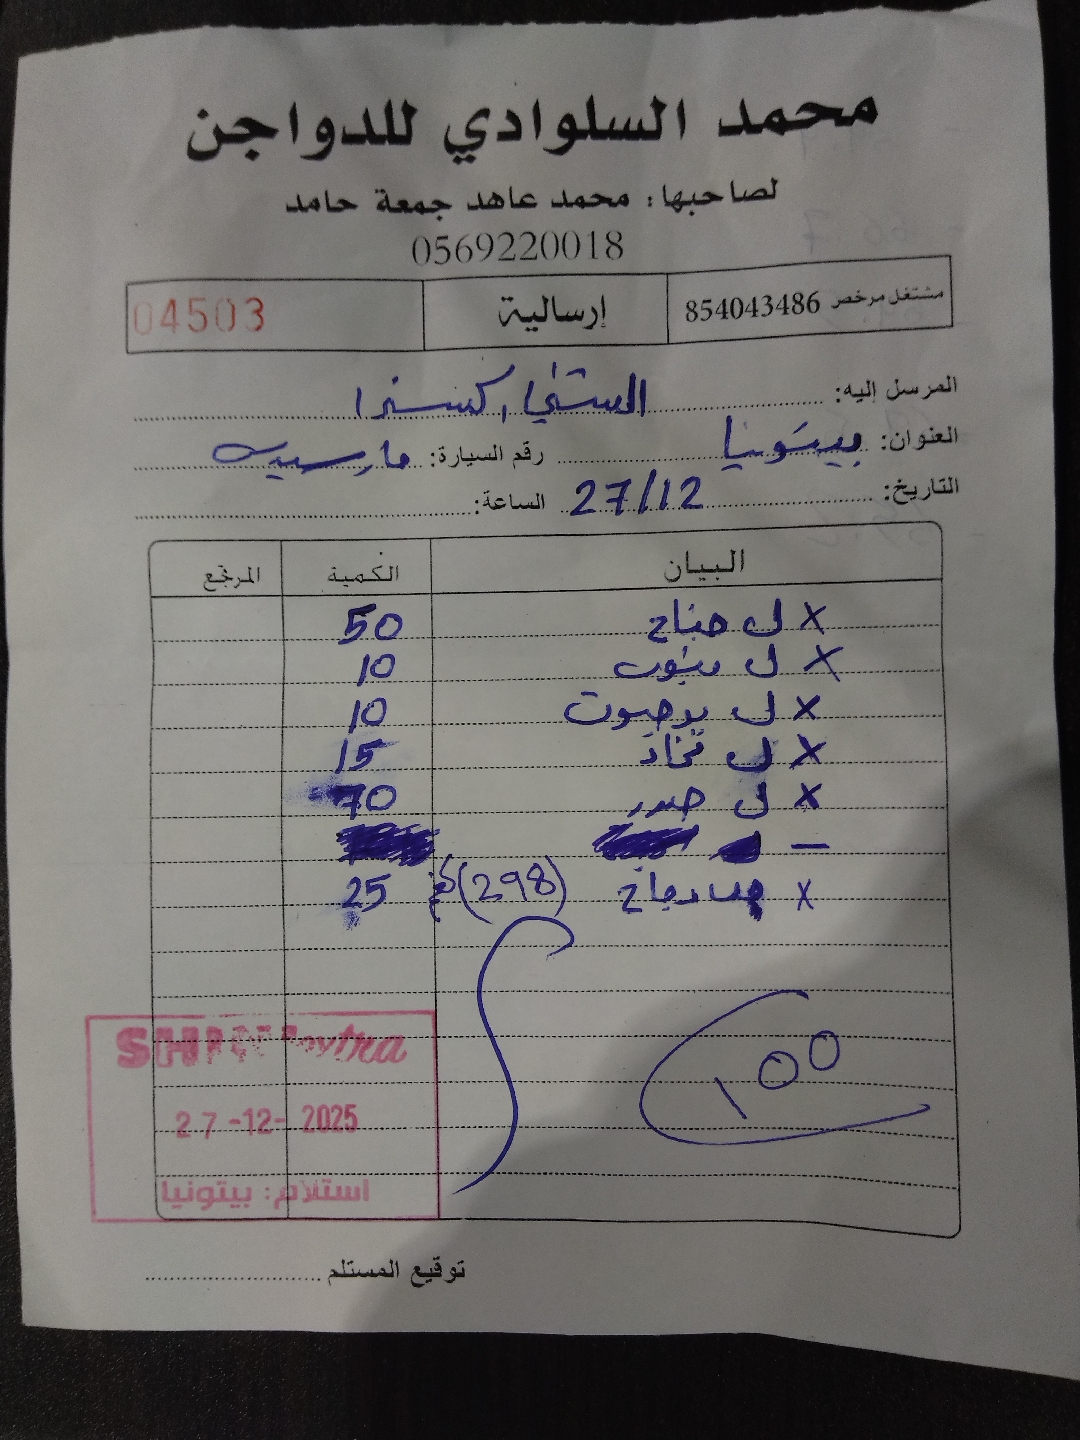 محمد السلوادي للدواجن
لصاحبها: محمد عاهد جمعة حامد
0569220018
مشتغل مرخص 854043486 إرسالية 04503
المرسل إليه: الشني اكسترا
العنوان: بيتونيا رقم السيارة:
التاريخ: 27/12 الساعة:
البيان الكمية المرتجع
X ل جناح 50
X ل 10
X ل 10
X ل فخاد 15
X ل صدر 70
X دجاج (298) كغ 25
100
27-12-2025
استلام: بيتونيا
توقيع المستلم